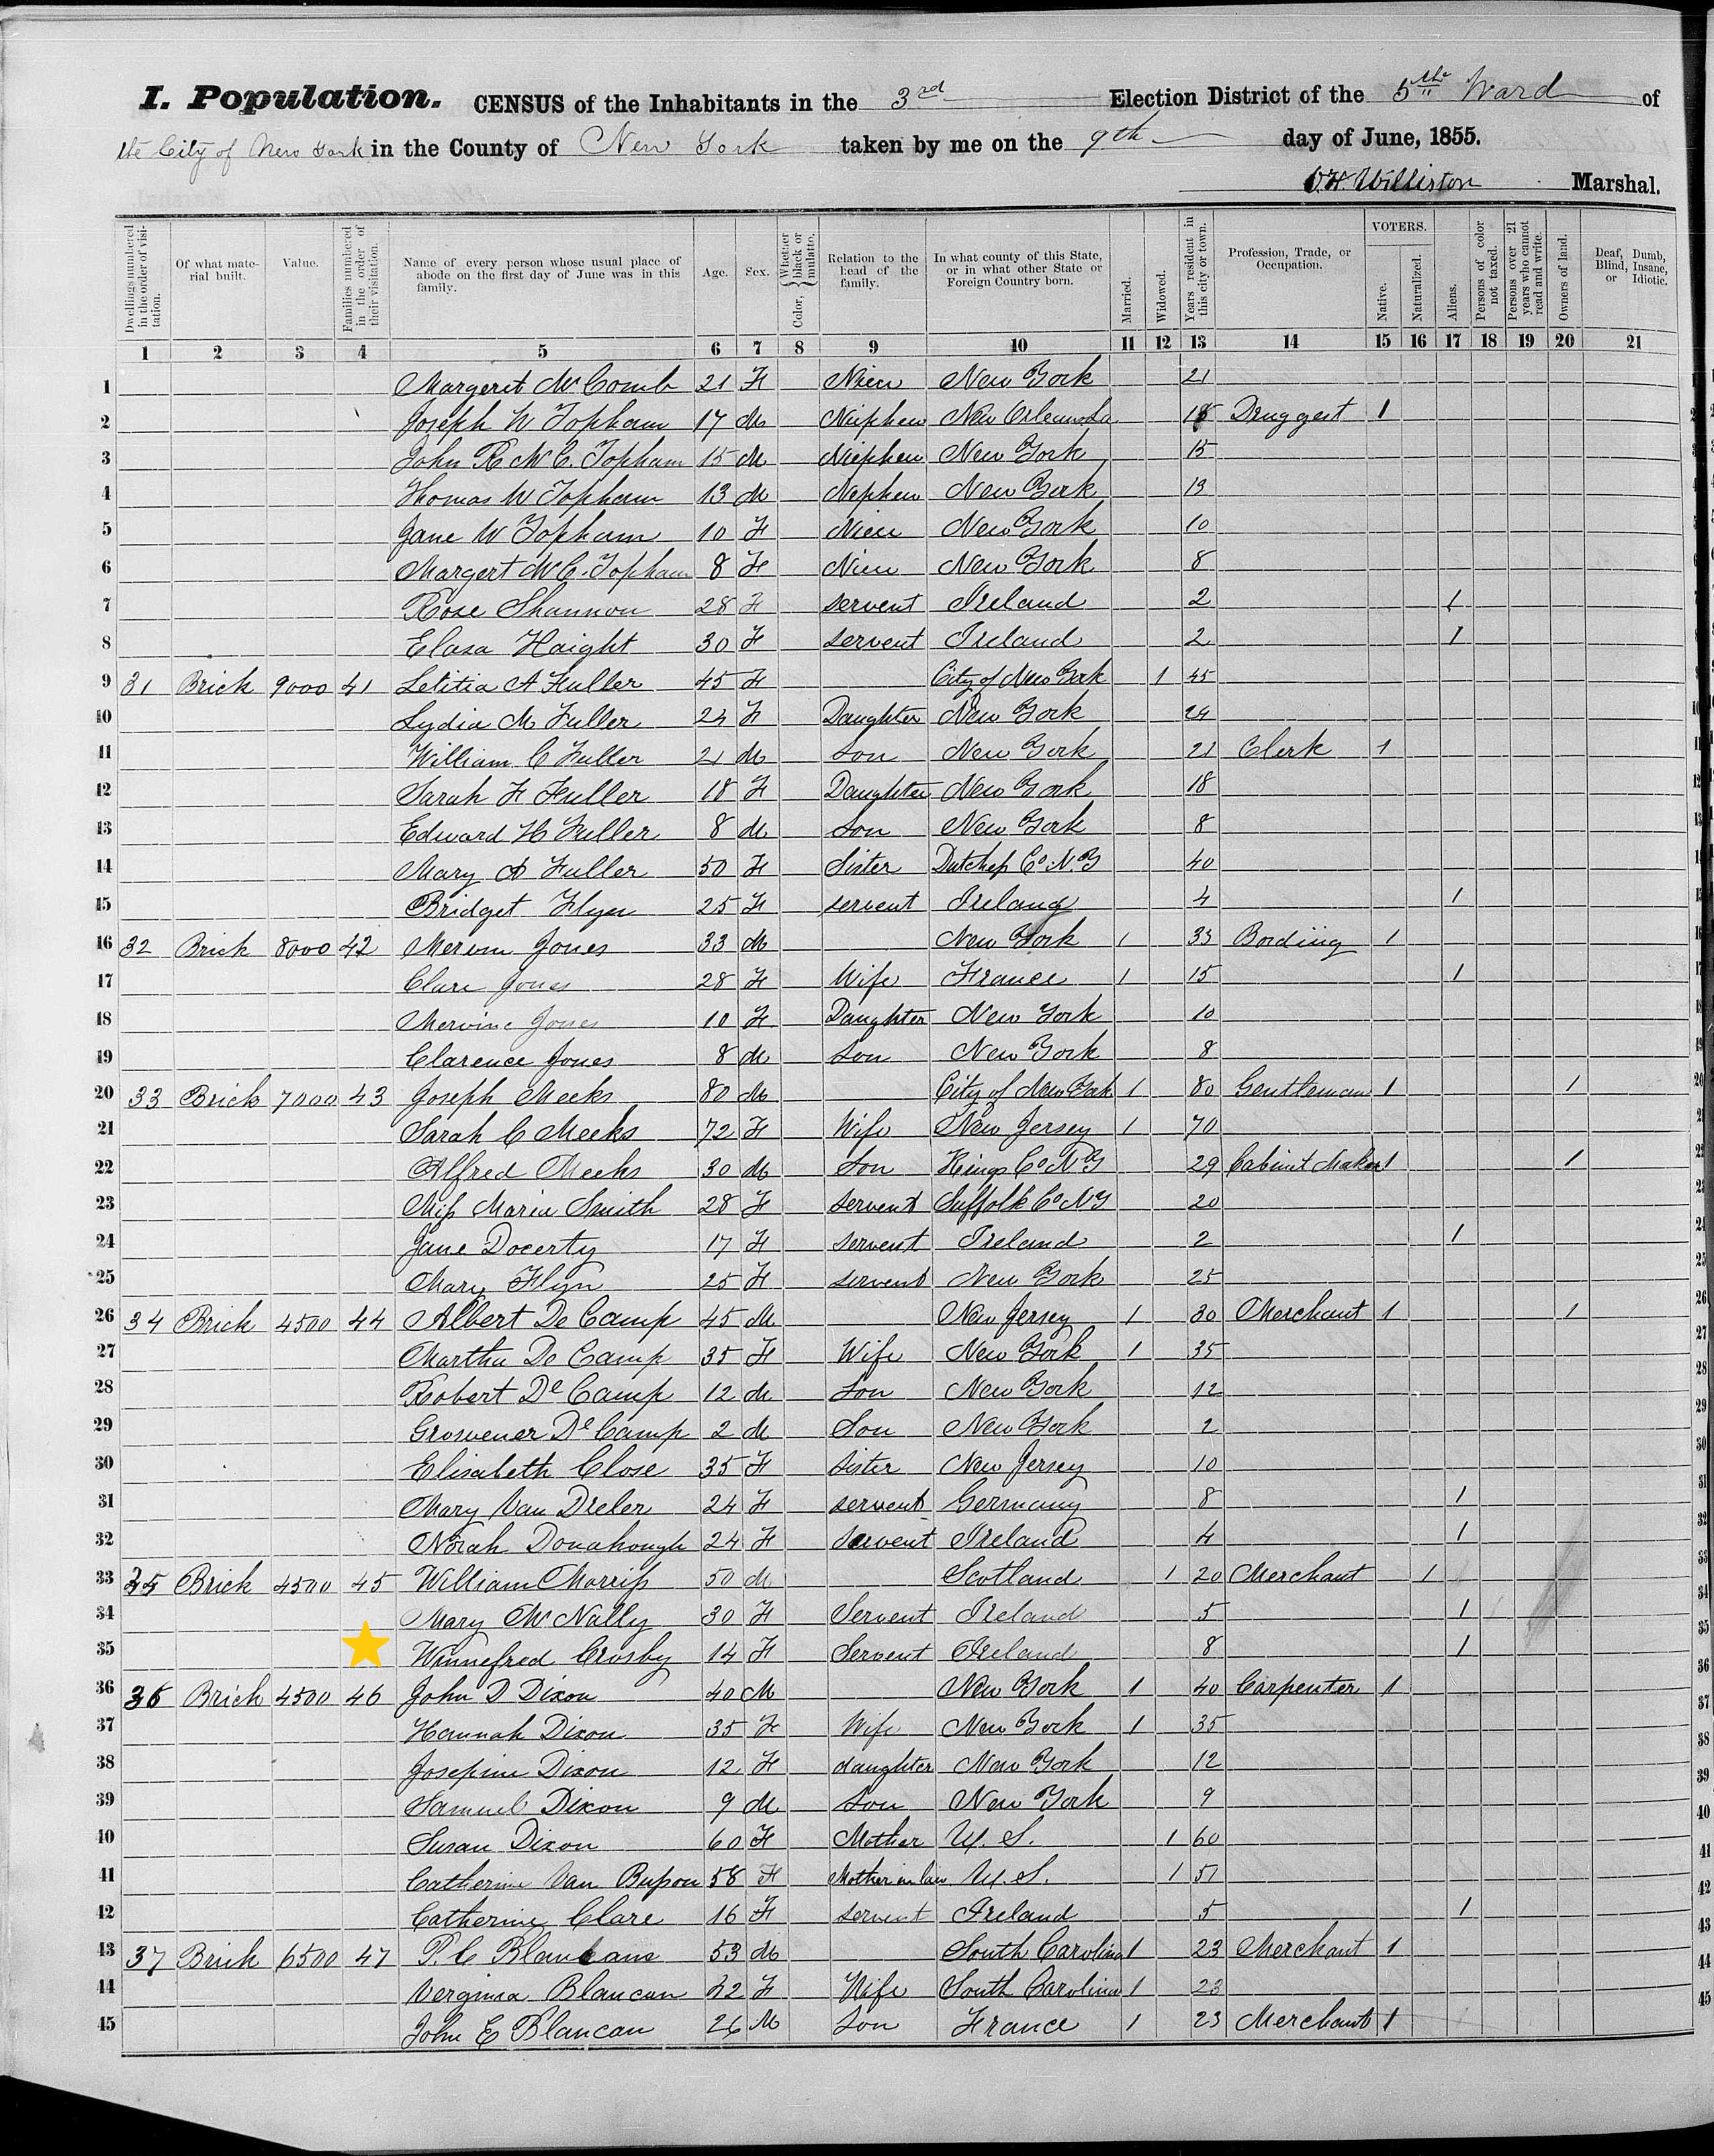 I. Population. CENSUS of the Inhabitants in the 3rd Election District of the 5th Ward of
the City of New York in the County of New York taken by me on the 9th day of June, 1855.
Williston Marshal.
Dwellings numbered in the order of visitation. Of what material built. Value. Families numbered in the order of their visitation. Name of every person whose usual place of abode on the first day of June was in this family. Age. Sex. Color, Whether black or mulatto. Relation to the head of the family. In what county of this State, or in what other State or Foreign Country born. Married. Widowed. Years resident in this city or town. Profession, Trade, or Occupation. VOTERS. Native. Naturalized. Aliens. Persons of color not taxed. Persons over 21 years who cannot read and write. Owners of land. Deaf, Dumb, Blind, Insane, or Idiotic.
1 2 3 4 5 6 7 8 9 10 11 12 13 14 15 16 17 18 19 20 21
1 Margeret McComb 21 F Niece New York 21
2 Joseph W Topham 17 M Niephew New Orleans La 18 Druggest 1
3 John R McC. Topham 15 M Niephew New York 15
4 Thomas W Topham 13 M Nephew New York 13
5 Jane W Topham 10 F Niece New York 10
6 Margert McC. Topham 8 F Niece New York 8
7 Rose Shannon 28 F servent Ireland 2 1
8 Elasa Haight 30 F servent Ireland 2 1
9 31 Brick 9000 41 Letitia A Fuller 45 F City of New York 1 45
10 Lydia M Fuller 24 F Daughter New York 24
11 William C Fuller 21 M Son New York 21 Clerk 1
12 Sarah F Fuller 18 F Daughter New York 18
13 Edward H Fuller 8 M Son New York 8
14 Mary A Fuller 50 F Sister Dutchess Co. N.Y 40
15 Bridget Flyn 25 F servent Ireland 4 1
16 32 Brick 8000 42 Jones 33 M New York 1 33 Bording 1
17 Clare Jones 28 F Wife France 1 15 1
18 Mervine Jones 10 F Daughter New York 10
19 Clarence Jones 8 M Son New York 8
20 33 Brick 7000 43 Joseph Meeks 80 M City of New York 1 80 Gentleman 1 1
21 Sarah C Meeks 72 F Wife New Jersey 1 70
22 Alfred Meeks 30 M Son Kings Co N.Y 29 Cabinet Maker 1 1
23 Miss Maria Smith 28 F servent Suffolk Co NY 20
24 Jane Docerty 17 F servent Ireland 2 1
25 Mary Flyn 25 F servent New York 25
26 34 Brick 4500 44 Albert De Camp 45 M New Jersey 1 30 Merchant 1 1
27 Martha De Camp 35 F Wife New York 1 35
28 Robert De Camp 12 M Son New York 12
29 Grosvener De Camp 2 M Son New York 2
30 Elisabeth Close 35 F sister New Jersey 10
31 Mary Van 24 F servent Germany 8 1
32 Norah Donahough 24 F servent Ireland 4 1
33 35 Brick 4500 45 William Morriss 50 M Scotland 1 20 Merchant 1
34 Mary McNally 30 F Servent Ireland 5 1
35 Winnefred Crosby 14 F Servent Ireland 8 1
36 36 Brick 4500 46 John D Dixon 40 M New York 1 40 Carpenter 1
37 Hannah Dixon 35 F Wife New York 1 35
38 Josepine Dixon 12 F daughter New York 12
39 Samuel Dixon 9 M Son New York 9
40 Susan Dixon 60 F Mother U. S. 1 60
41 Catherine Van 58 F Mother in law U. S. 1 51
42 Catherine Clare 16 F servent Ireland 5 1
43 37 Brick 6500 47 P. C 53 M South Carolina 1 23 Merchant 1
44 Verginia Blancan 42 F Wife South Carolina 1 23
45 John E Blancan 26 M Son France 1 23 Merchant 1